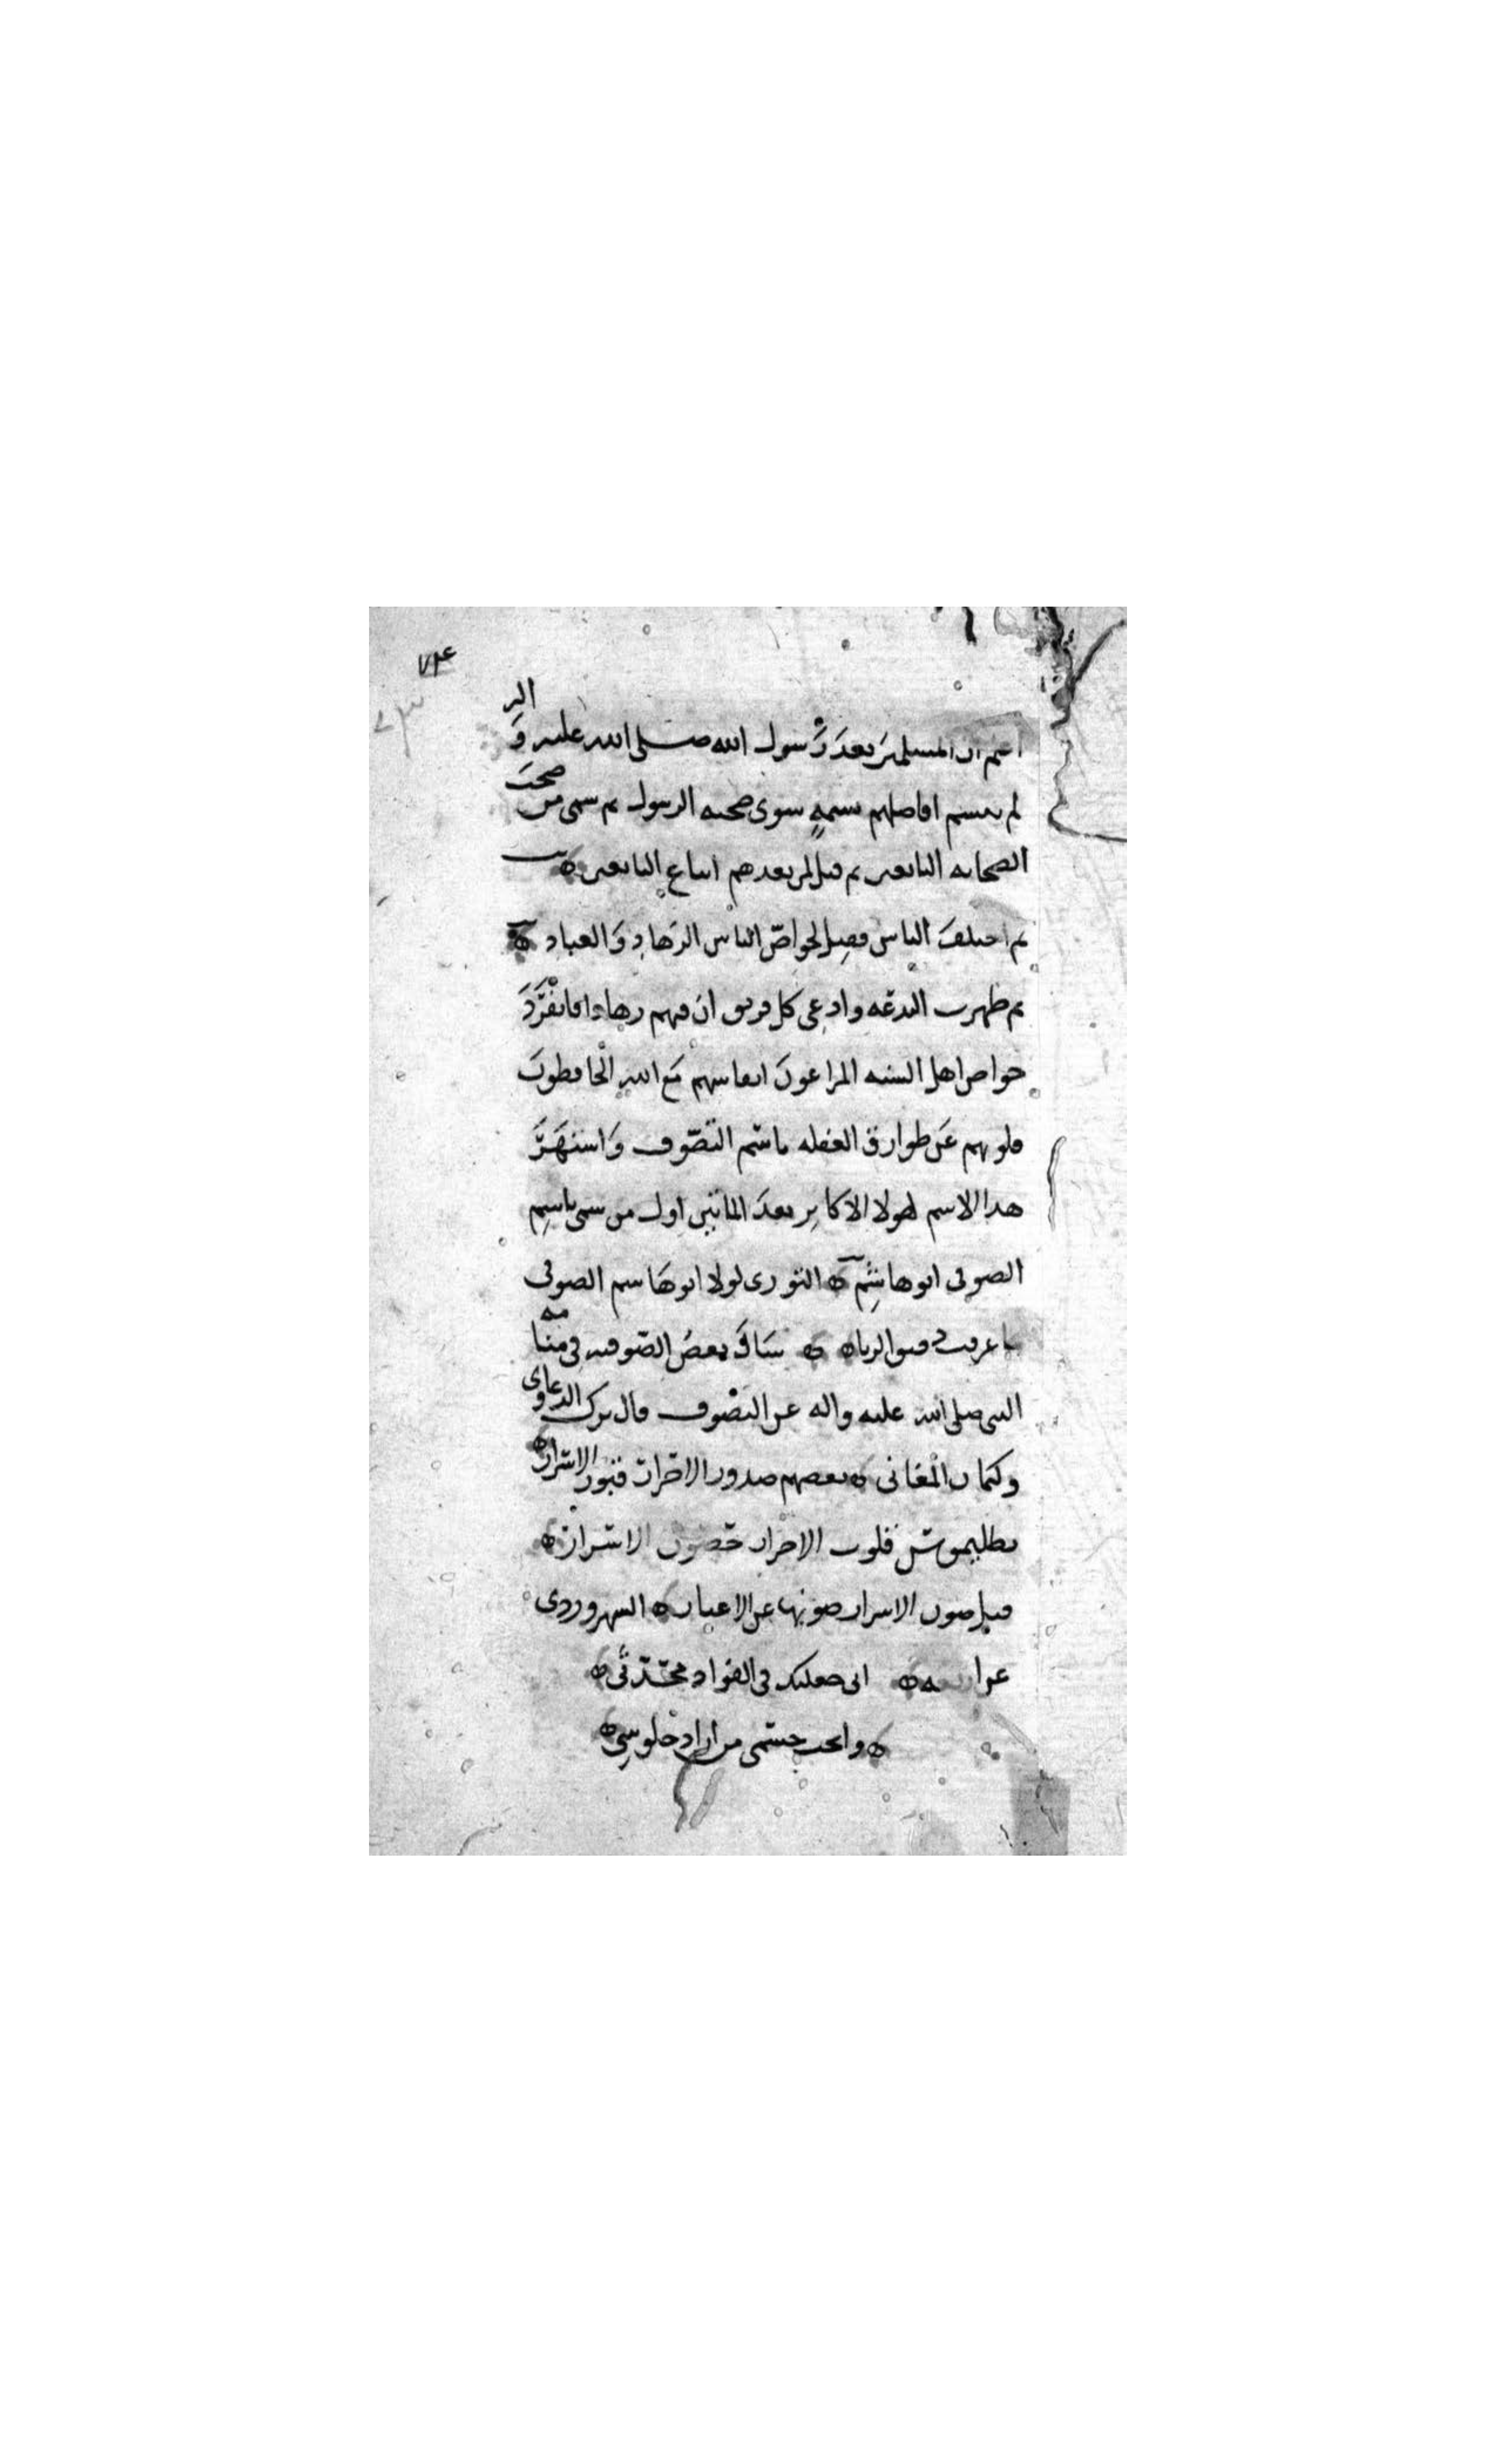 ٧٣
اسم ان المسلمين بعد رسول الله صلى الله عليه و اله
لم يتسم افاضلهم بسمة سوى صحبة الرسول ثم سمى من صحب
الصحابة التابعين ثم قيل لمن بعدهم اتباع التابعين
ثم اختلف الناس فقيل لخواص الناس الزهاد والعباد
ثم ظهرت البدعة وادعى كل فريق ان فيهم زهادا فانفرد
خواص اهل السنة المراعون انفاسهم مع الله الحافظون
قلوبهم عن طوارق الغفلة باسم التصوف واشتهر
هذا الاسم لهولا الاكابر بعد المائتين اول من سمى باسم
الصوفى ابو هاشم الثورى لولا ابو هاشم الصوفى
ما عرفت دقيق الريا سال بعض الصوفية فى منامه
النبى صلى الله عليه واله عن التصوف قال ترك الدعاوى
وكتمان المعانى بعضهم صدور الاحرار قبور الاسرار
بطليموس قلوب الاحرار حصون الاسرار
قيل صون الاسرار صونها عن الاغيار السهروردى
انى جعلتك فى الفؤاد محدثى
وابحت جسمى من اراد جلوسى